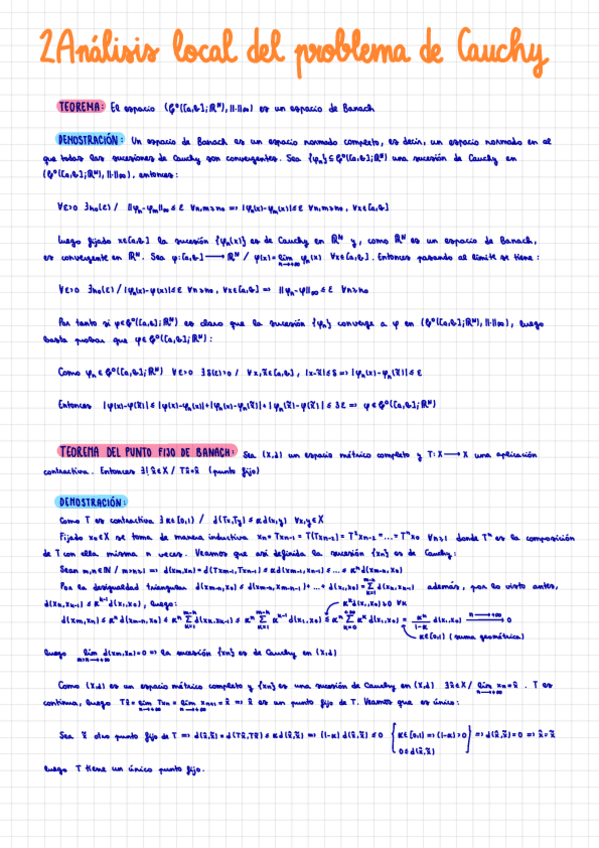 2 Análisis local del problema de Cauchy
TEOREMA: El espacio (C⁰([a,b];ℝᴺ), ||·||∞) es un espacio de Banach
DEMOSTRACIÓN: Un espacio de Banach es un espacio normado completo, es decir, un espacio normado en el
que todas las sucesiones de Cauchy son convergentes. Sea {φₙ} ⊆ C⁰([a,b];ℝᴺ) una sucesión de Cauchy en
(C⁰([a,b];ℝᴺ), ||·||∞), entonces:
∀ε>0 ∃n₀(ε) / ||φₙ-φₘ||∞ ≤ ε ∀n,m≥n₀ => |φₙ(x)-φₘ(x)| ≤ ε ∀n,m≥n₀, ∀x∈[a,b]
Luego fijado x∈[a,b] la sucesión {φₙ(x)} es de Cauchy en ℝᴺ y, como ℝᴺ es un espacio de Banach,
es convergente en ℝᴺ. Sea φ:[a,b] → ℝᴺ / φ(x) = lim n→+∞ φₙ(x) ∀x∈[a,b]. Entonces pasando al límite se tiene:
∀ε>0 ∃n₀(ε) / |φₙ(x)-φ(x)| ≤ ε ∀n≥n₀, ∀x∈[a,b] => ||φₙ-φ||∞ ≤ ε ∀n≥n₀
Por tanto si φ∈C⁰([a,b];ℝᴺ) es claro que la sucesión {φₙ} converge a φ en (C⁰([a,b];ℝᴺ), ||·||∞), luego
basta probar que φ∈C⁰([a,b];ℝᴺ):
Como φₙ∈C⁰([a,b];ℝᴺ) ∀ε>0 ∃δ(ε)>0 / ∀x,x̃∈[a,b], |x-x̃| ≤ δ => |φₙ(x)-φₙ(x̃)| ≤ ε
Entonces |φ(x)-φ(x̃)| ≤ |φ(x)-φₙ(x)|+|φₙ(x)-φₙ(x̃)|+|φₙ(x̃)-φ(x̃)| ≤ 3ε => φ∈C⁰([a,b];ℝᴺ)
TEOREMA DEL PUNTO FIJO DE BANACH: Sea (X,d) un espacio métrico completo y T:X → X una aplicación
contractiva. Entonces ∃! x̂∈X / Tx̂=x̂ (punto fijo)
DEMOSTRACIÓN:
Como T es contractiva ∃ K∈[0,1) / d(Tx,Ty) ≤ Kd(x,y) ∀x,y∈X
Fijado x₀∈X se toma de manera inductiva xₙ = Txₙ₋₁ = T(Txₙ₋₂) = T²xₙ₋₂ = ... = Tⁿx₀ ∀n≥1 donde Tⁿ es la composición
de T con ella misma n veces. Veamos que así definida la sucesión {xₙ} es de Cauchy:
Sean m,n∈ℕ / m>n≥1 => d(xₘ,xₙ) = d(Txₘ₋₁,Txₙ₋₁) ≤ Kd(xₘ₋₁,xₙ₋₁) ≤ ... ≤ Kⁿd(xₘ₋ₙ,x₀)
Por la desigualdad triangular d(xₘ₋ₙ,x₀) ≤ d(xₘ₋ₙ,xₘ₋ₙ₋₁)+...+d(x₁,x₀) = Σ d(xₖ,xₖ₋₁) además, por lo visto antes,
d(xₖ,xₖ₋₁) ≤ Kᵏ⁻¹d(x₁,x₀), luego: Kᵏd(x₁,x₀)≥0 ∀k
d(xₘ,xₙ) ≤ Kⁿd(xₘ₋ₙ,x₀) ≤ Kⁿ Σ d(xₖ,xₖ₋₁) ≤ Kⁿ Σ Kᵏ⁻¹d(x₁,x₀) ≤ Kⁿ Σ Kᵏd(x₁,x₀) = Kⁿ/(1-K) d(x₁,x₀) n→+∞ 0
K∈[0,1) (suma geométrica)
Luego lim m>n→+∞ d(xₘ,xₙ)=0 => la sucesión {xₙ} es de Cauchy en (X,d)
Como (X,d) es un espacio métrico completo y {xₙ} es una sucesión de Cauchy en (X,d) ∃x̂∈X / lim n→+∞ xₙ=x̂. T es
continua, luego Tx̂ = lim n→+∞ Txₙ = lim n→+∞ xₙ₊₁ = x̂ => x̂ es un punto fijo de T. Veamos que es único:
Sea x̃ otro punto fijo de T => d(x̂,x̃) = d(Tx̂,Tx̃) ≤ Kd(x̂,x̃) => (1-K) d(x̂,x̃) ≤ 0 { K∈[0,1) => (1-K)>0 } => d(x̂,x̃)=0 => x̂=x̃
0≤d(x̂,x̃)
Luego T tiene un único punto fijo.